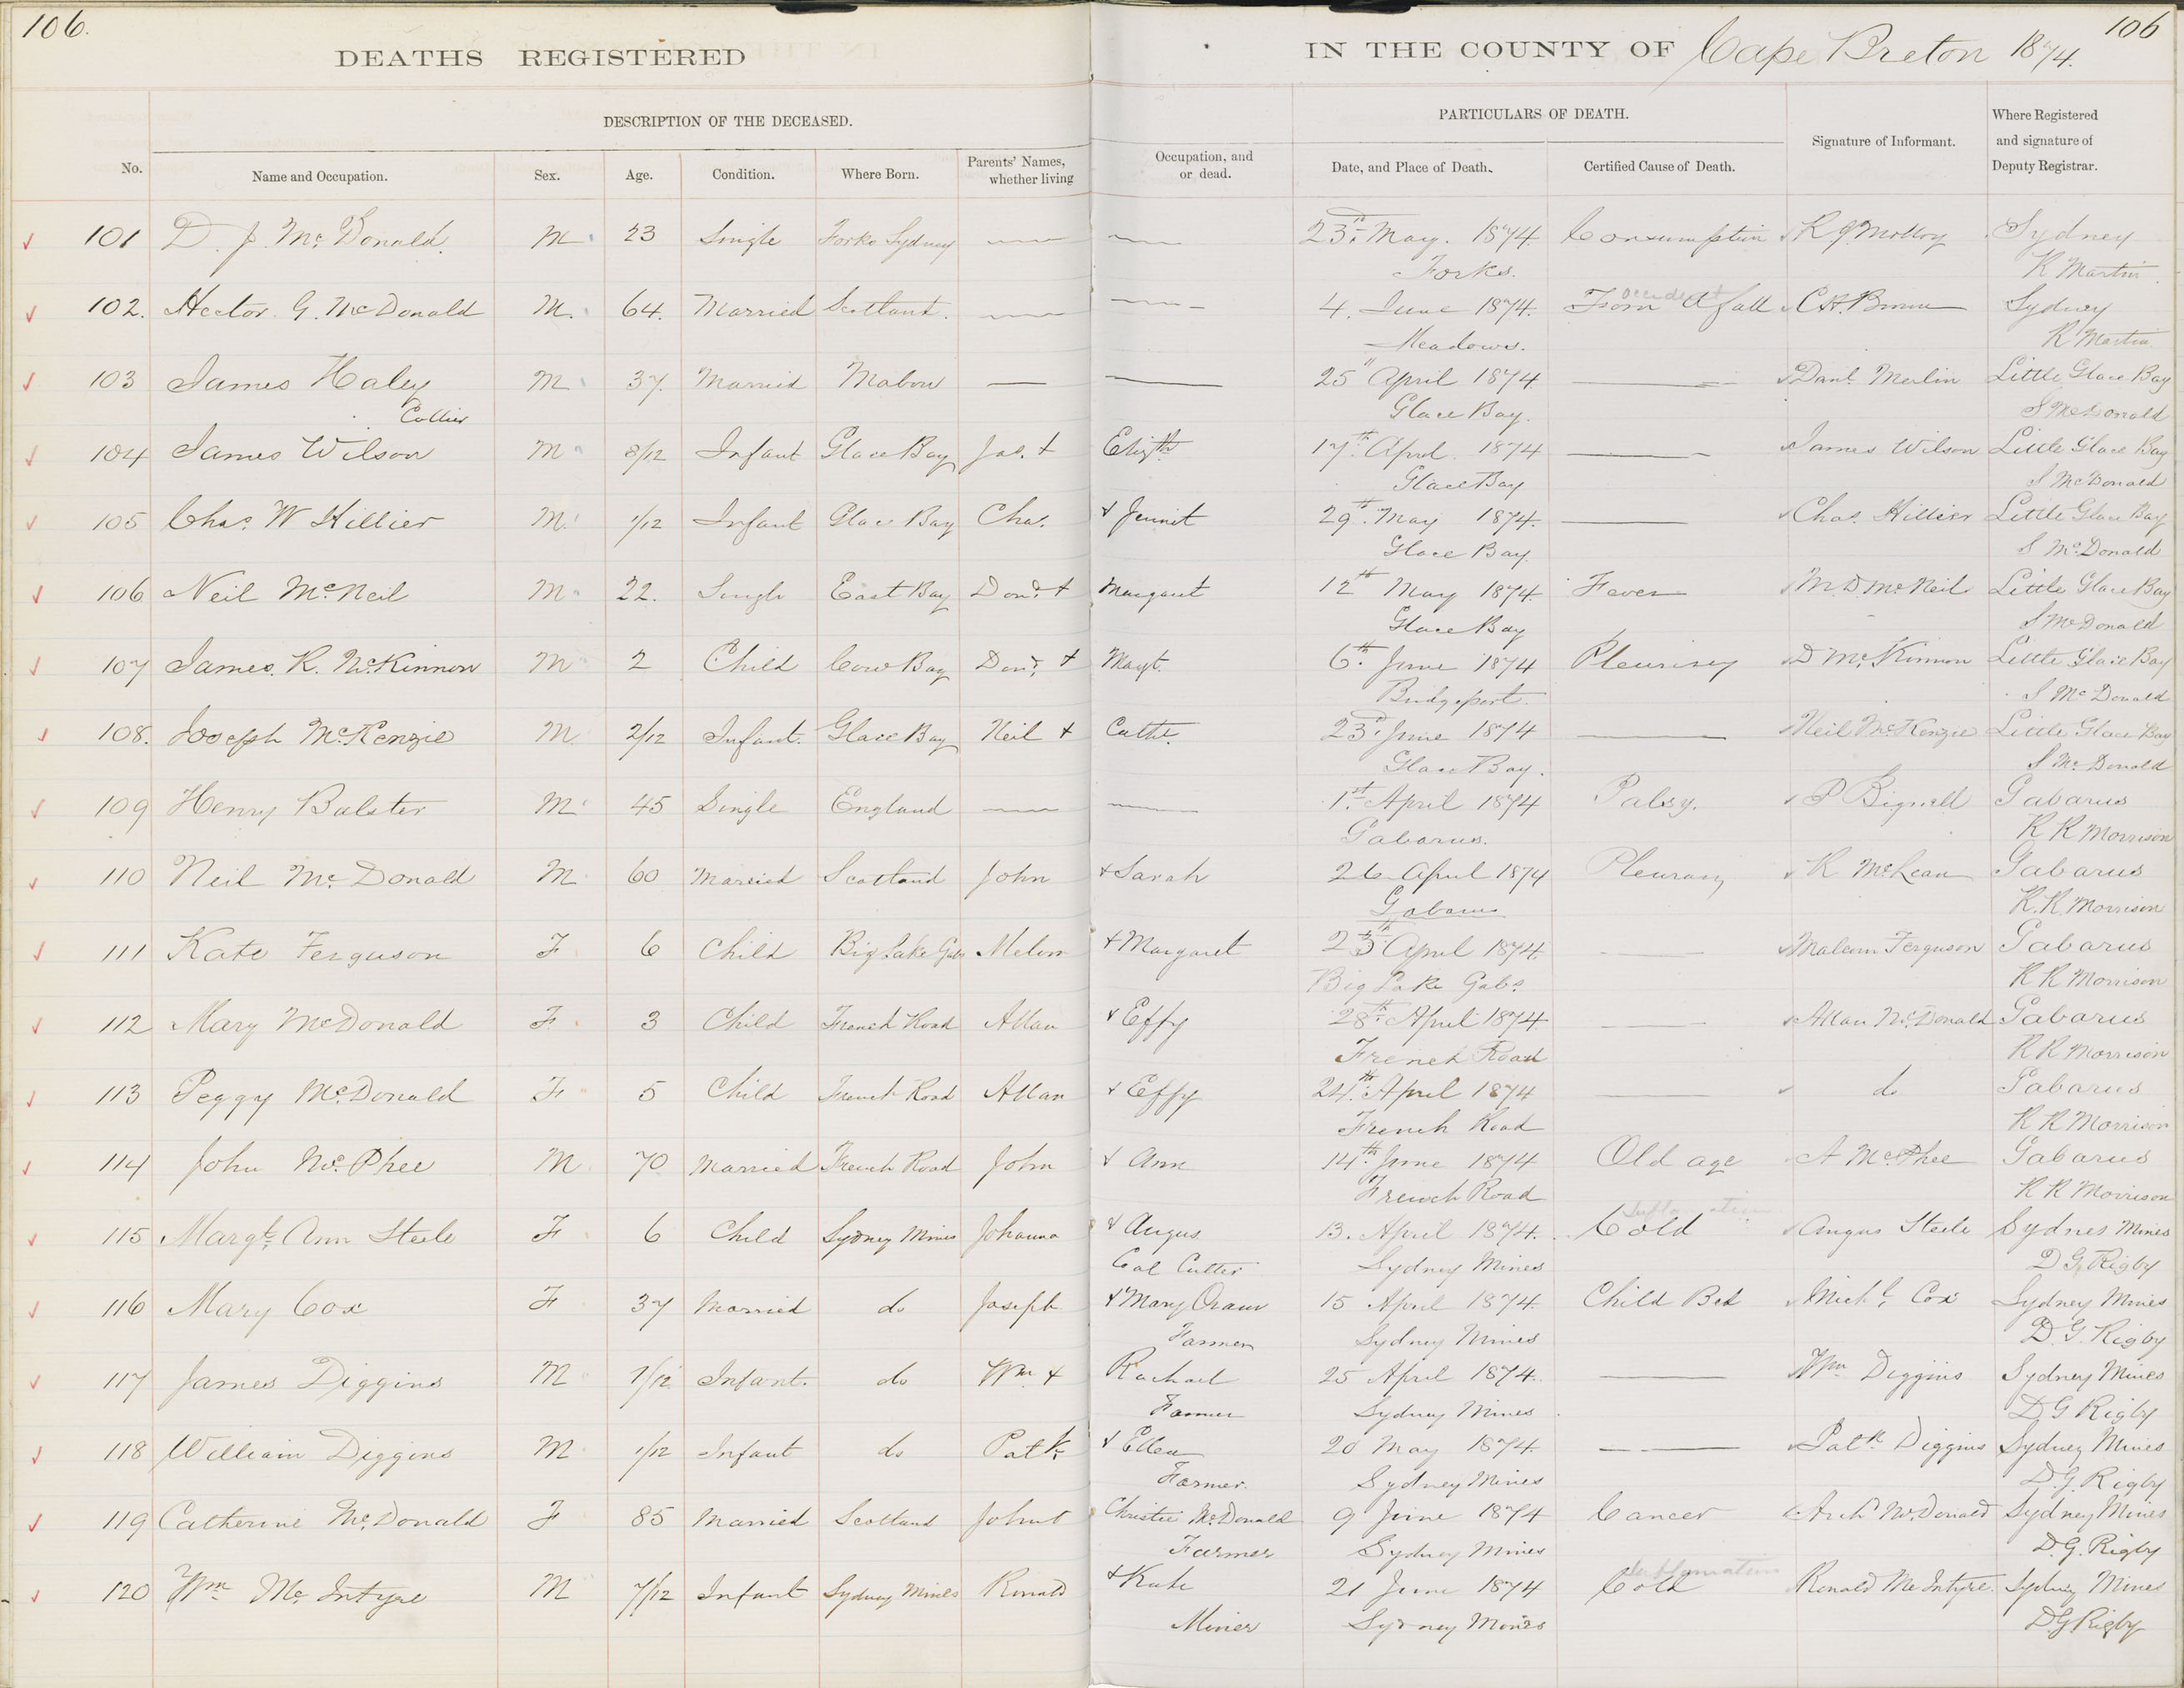 106.
106
DEATHS REGISTERED IN THE COUNTY OF Cape Breton 1874.
DESCRIPTION OF THE DECEASED. PARTICULARS OF DEATH.
No. Name and Occupation. Sex. Age. Condition. Where Born. Parents' Names, whether living Occupation, and or dead. Date, and Place of Death. Certified Cause of Death. Signature of Informant. Where Registered and signature of Deputy Registrar.
101 D. J. McDonald. M. 23 Single Forks Sydney 23rd May. 1874. Consumption Sydney
Forks. R Martin
102. Hector. G. McDonald M. 64. Married Scotland. 4. June 1874. From A fall C.H. Brown Sydney
Meadows. R Martin
103 James Haley M 37. Married Mabou 25" April 1874 Danl. Merlin Little Glace Bay
Collier Glace Bay. S McDonald
104 James Wilson M 8/12 Infant Glace Bay Jas. + Elizth 17th April. 1874 James Wilson Little Glace Bay
Glace Bay S McDonald
105 Chas. W Hillier M. 1/12 Infant Glace Bay Chas. + 29th May 1874. Chas. Hillier Little Glace Bay
Glace Bay. S McDonald
106 Neil McNeil M 22. Single East Bay Dond. + Margaret 12th May 1874. Fever M. D. McNeil Little Glace Bay
Glace Bay S McDonald
107 James. R. McKinnon M 2 Child Cow Bay Dond. + Margt. 6th June 1874 Pleurisy D McKinnon Little Glace Bay
Bridgeport. S McDonald
108. Joseph McKenzie M. 2/12 Infant. Glace Bay Neil + Cathe. 23rd June 1874 Neil McKenzie Little Glace Bay
Glace Bay. S McDonald
109 Henry Balster M. 45 Single England 1st April 1874 Palsy. P Bignell Gabarus
Gabarus. R R Morrison
110 Neil McDonald M 60 Married Scotland John + Sarah 26 April 1874 Pleurisy R McLean Gabarus
Gabarus R. R. Morrison
111 Kate Ferguson F 6 Child Big Lake Gabs + Margaret April 1874. Ferguson Gabarus
Big Lake Gabs. R R Morrison
112 Mary McDonald F. 3 Child French Road Allan + Effy 28th April 1874 Allan McDonald Gabarus
French Road R R Morrison
113 Peggy McDonald F 5 Child French Road Allan + Effy 24th April 1874 do Gabarus
French Road R R Morrison
114 John McPhee M 70 Married French Road John + Ann 14th June 1874 Old age A McPhee Gabarus
French Road R R Morrison
115 Margt. Ann Steele F 6 Child Sydney Mines Johanna + Angus 13. April 1874. Cold Angus Steele Sydney Mines
Coal Cutter Sydney Mines D. G. Rigby
116 Mary Cox F 37 Married do Joseph + Mary Oram 15 April 1874. Child Bed Michl. Cox Sydney Mines
Farmer Sydney Mines D. G. Rigby
117 James Diggins M 1/12 Infant. do Wm + Rachael 25 April 1874. Wm Diggins Sydney Mines
Farmer Sydney Mines D G Rigby
118 William Diggins M 1/12 Infant do Patk. + Ellen 20 May 1874. Patk Diggins Sydney Mines
Farmer. Sydney Mines D. G. Rigby
119 Catherine McDonald F 85 Married Scotland John + Christie McDonald 9 June 1874 Cancer Archd McDonald Sydney Mines
Farmer Sydney Mines D. G. Rigby
120 Wm McIntyre M 7/12 Infant Sydney Mines Ronald + Kate 21 June 1874 Cold Ronald McIntyre. Sydney Mines
Miner Sydney Mines D G Rigby